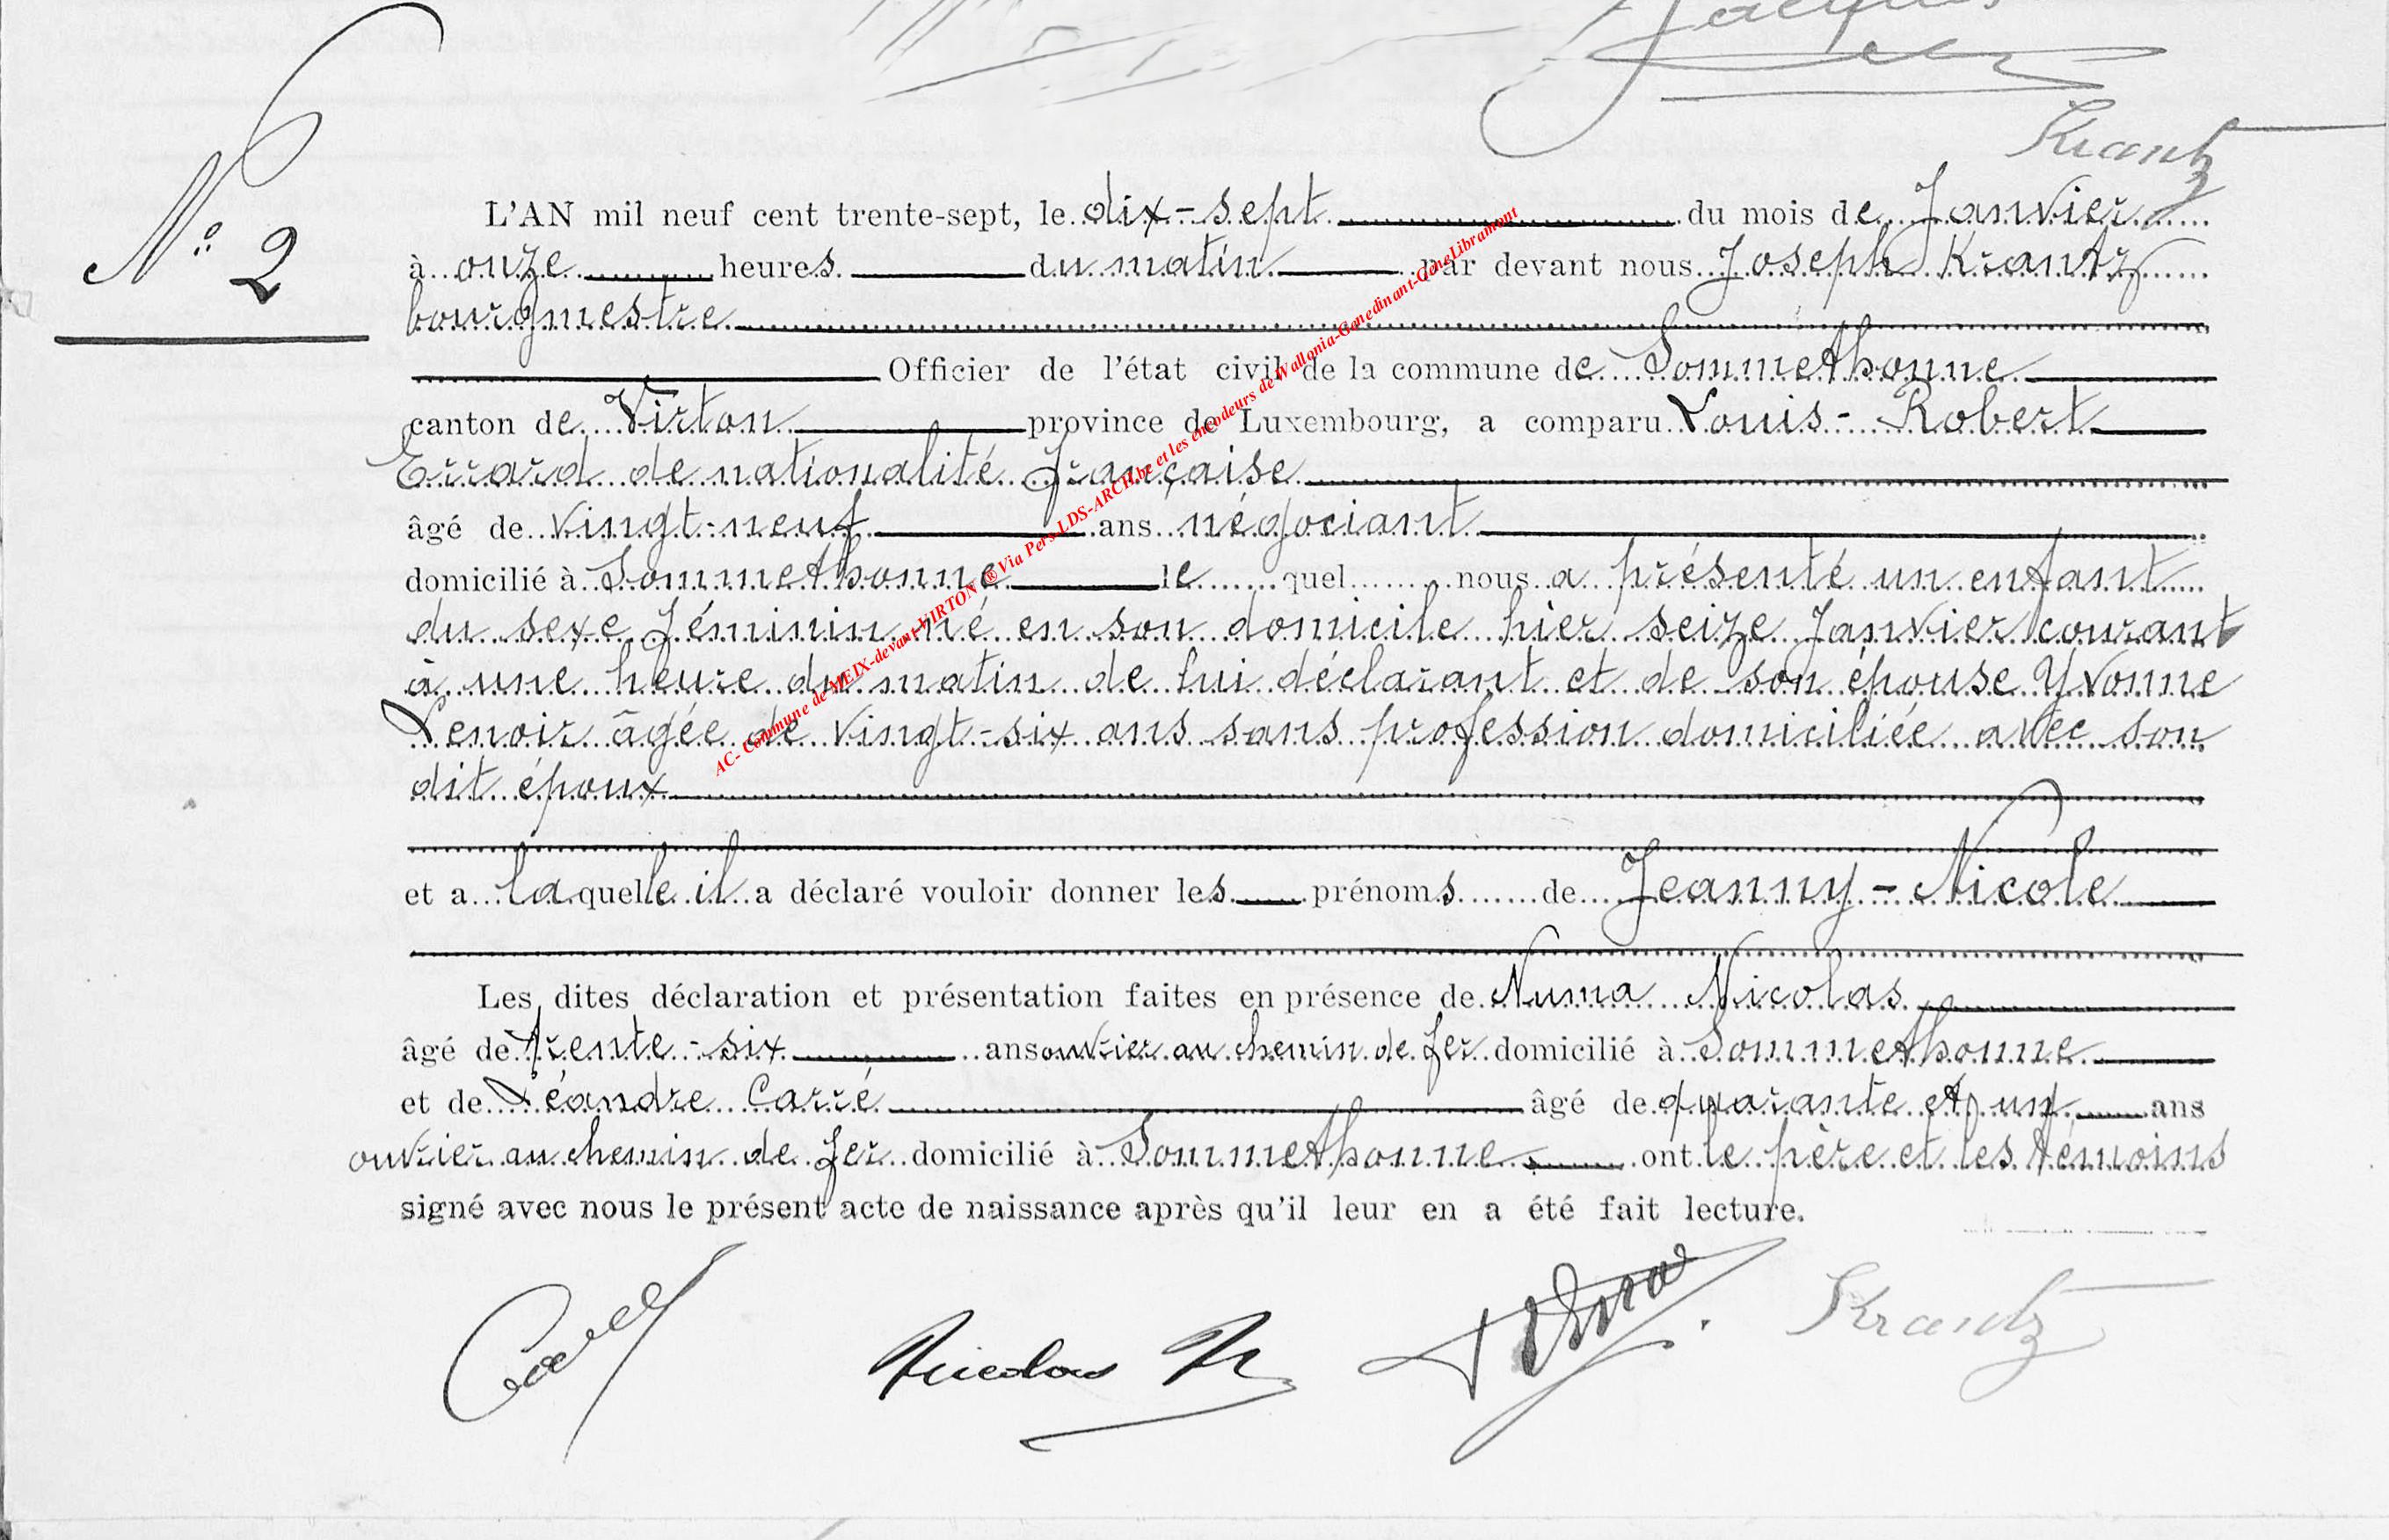 Krantz
N° 2
L'AN mil neuf cent trente-sept, le dix-sept du mois de Janvier
à onze heures du matin par devant nous Joseph Krantz
bourgmestre
Officier de l'état civil de la commune de Sommethonne
canton de Virton province de Luxembourg, a comparu Louis-Robert
Errard de nationalité française
âgé de vingt-neuf ans négociant
domicilié à Sommethonne le quel nous a présenté un enfant
du sexe féminin né en son domicile hier seize Janvier courant
à une heure du matin de lui déclarant et de son épouse Yvonne
Lenoir âgée de vingt-six ans sans profession domiciliée avec son
dit époux
et a laquelle il a déclaré vouloir donner les prénoms de Jeanny-Nicole
Les dites déclaration et présentation faites en présence de Numa Nicolas
âgé de trente-six ans ouvrier au chemin de fer domicilié à Sommethonne
et de Léandre Carré âgé de quarante et un ans
ouvrier au chemin de fer domicilié à Sommethonne ont le père et les témoins
signé avec nous le présent acte de naissance après qu'il leur en a été fait lecture.
Nicolas N Krantz
AC- Commune de MEIX-devant-VIRTON ® Via Pers-LDS-ARCH.be et les encodeurs de Wallonia-Genedinant-GeneLibramont